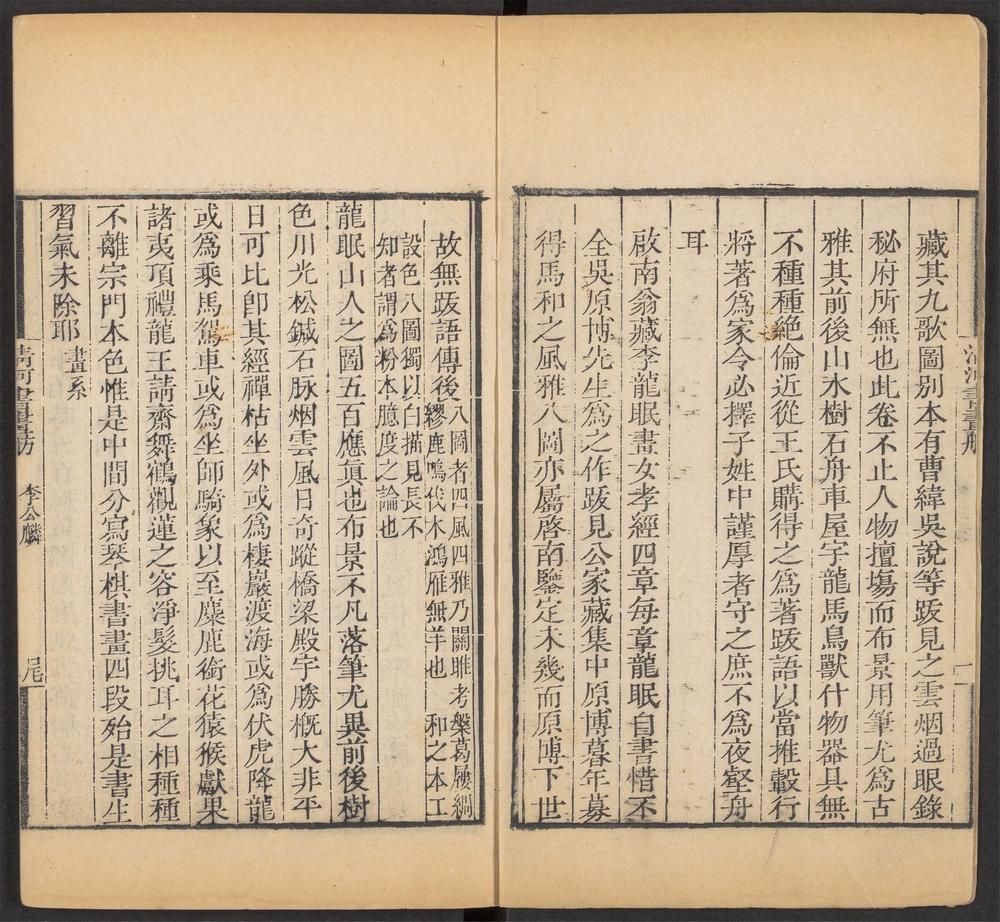 藏其九歌圖別本有曹緯吳說等跋見之雲烟過眼錄
秘府所無也此卷不止人物擅塲而布景用筆尤為古
雅其前後山水樹石舟車屋宇龍馬鳥獸什物器具無
不種種絶倫近從王氏購得之為著跋語以當推轂行
將著為家令必擇子姓中謹厚者守之庶不為夜壑舟
耳
啟南翁藏李龍眠畫女孝經四章每章龍眠自書惜不
全吳原博先生為之作跋見公家藏集中原博暮年募
得馬和之風雅八圖亦屬啓南鑒定未幾而原博下世
故無跋語傳後
八圖者四風四雅乃關雎考槃葛屨綢
繆鹿鳴伐木鴻雁無羊也 和之本工
設色八圖獨以白描見長不
知者謂為粉本臆度之論也
龍眠山人之圖五百應眞也布景不凡落筆尤異前後樹
色川光松鍼石脉烟雲風日奇蹤橋梁殿宇勝槪大非平
日可比卽其經禪枯坐外或為棲巖渡海或為伏虎降龍
或為乘馬駕車或為坐師騎象以至麋鹿銜花猿猴獻果
諸夷頂禮龍王請齋舞鶴觀蓮之容淨髮挑耳之相種種
不離宗門本色惟是中間分寫琴棋書畫四段殆是書生
習氣未除耶 畫系
清河書畫舫 李公麟 尾
清河書畫舫